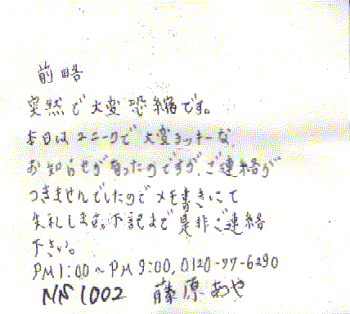 前略
突然で大変恐縮です。
本日はユニークで大変ラッキーな
お知らせが有ったのですが、ご連絡が
つきませんでしたのでメモ書きにて
失礼します。下記まで是非ご連絡
下さい。
PM1:00~PM9:00, 0120-97-6290
NN1002 藤原あや